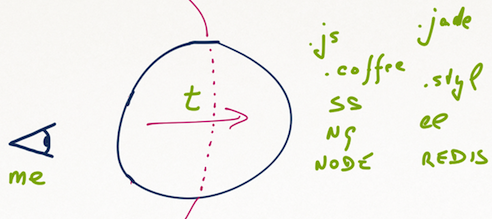 t
me
.js
.coffee
SS
NG
NODE
.jade
.styl
ee
REDIS